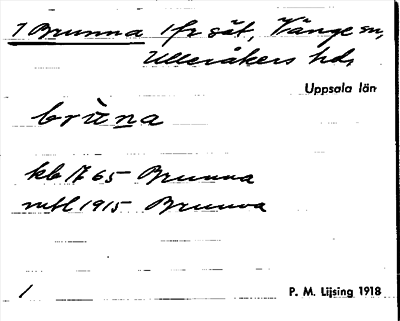 1 Brunna 1 fr sät, Vänge sn,
Ulleråkers hd,
Uppsala län
brùna
kb 1765 Brunna
mtl 1915 Brunna
1 P. M. Lijsing 1918